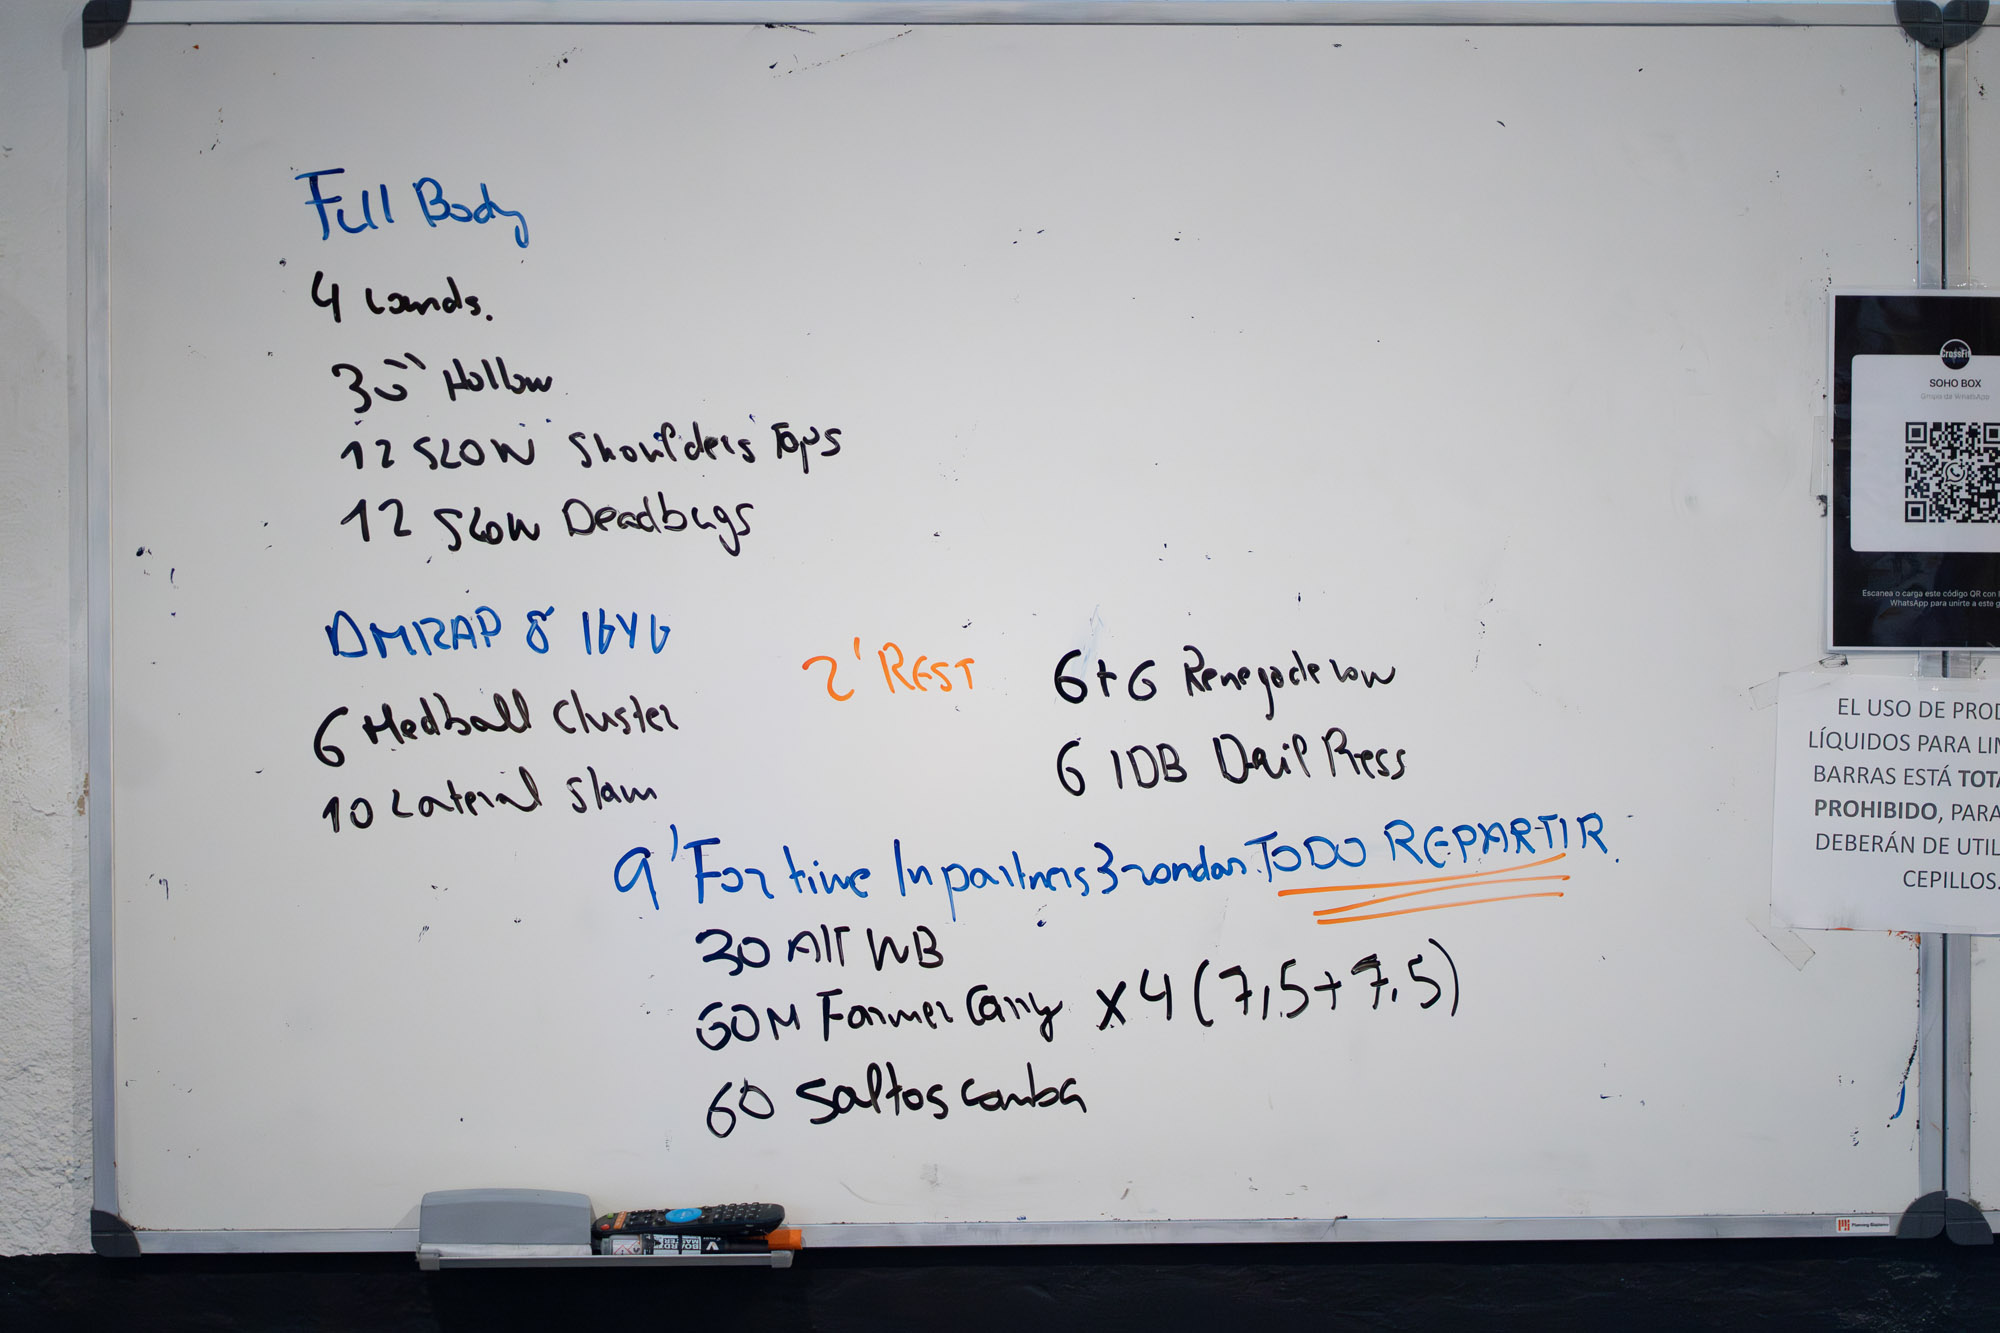 Full Body
4 rounds.
30" Hollow
12 SLOW Shoulders Taps
12 SLOW Deadbugs
AMRAP 8' IGYG
6 Medball Cluster
10 Lateral Slam
2' REST
6+6 Renegade row
6 1DB Devil Press
9' For time In partners 3 rondas. TODO REPARTIR.
30 Alt WB
60M Farmer Carry x4 (7,5+7,5)
60 Saltos comba
CrossFit
SOHO BOX
Grupo de WhatsApp
Escanea o carga este código QR con l
WhatsApp para unirte a este g
EL USO DE PROD
LÍQUIDOS PARA LIM
BARRAS ESTÁ TOTA
PROHIBIDO, PARA
DEBERÁN DE UTIL
CEPILLOS.
Planning Sisplamo